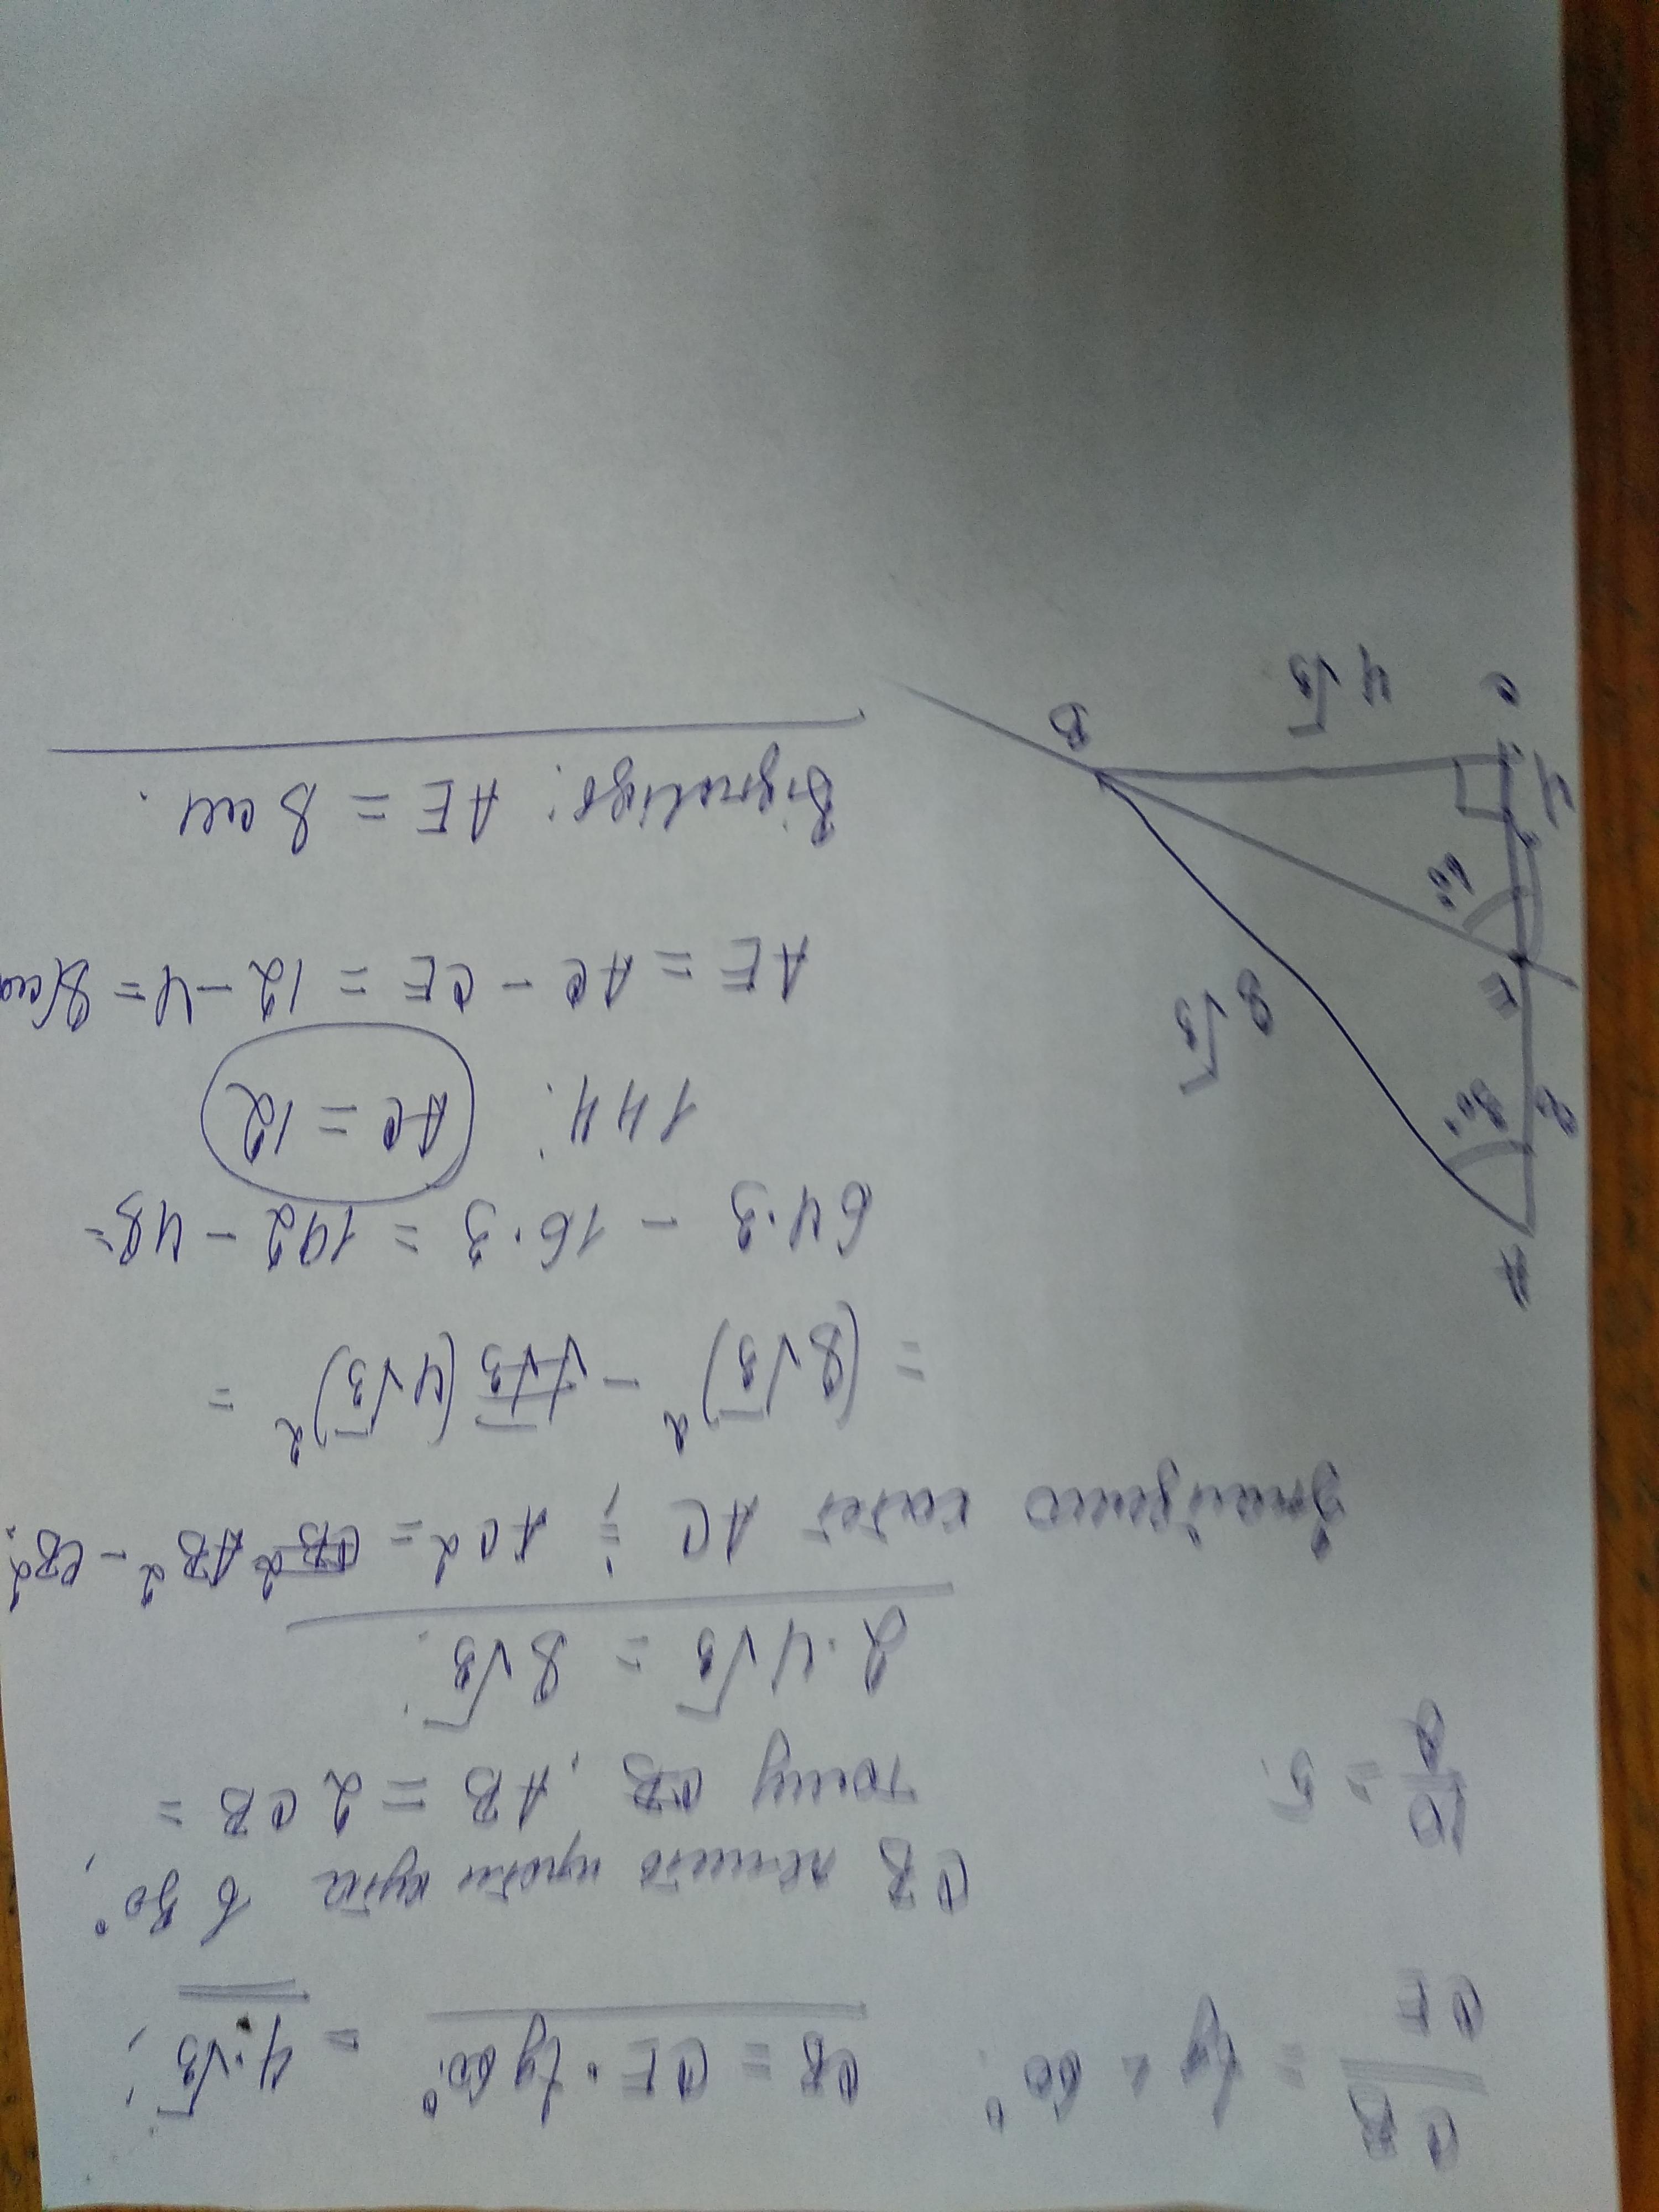 CB/CE = tg ∠ 60°.
CB = CE · tg 60° = 4·√3;
CB лежить проти кута в 30°,
тому CB. AB = 2CB =
10/2 = 5.
2·4√3 = 8√3.
Знайдемо катет AC ; AC2 = CB2 AB² - CB².
= (8√3)² - √√3 (4√3)² =
64·3 - 16·3 = 192 - 48 =
144. AC = 12
AE = AC - CE = 12 - 4 = 8(см
Відповідь: AE = 8 см.
A
30°
8
8√3
E
60°
4
B
4√3
C